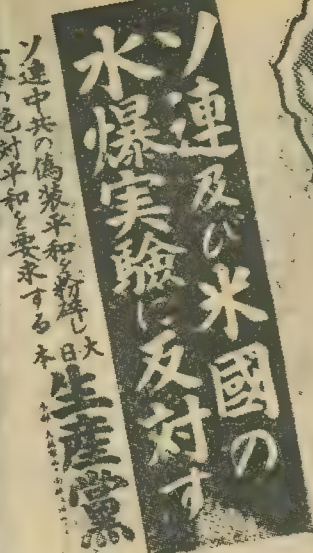 ソ連及び米國の
水爆実験に反対す
ソ連中共の偽装平和を粉砕し
の絶対平和を要求する
大日本
生産黨